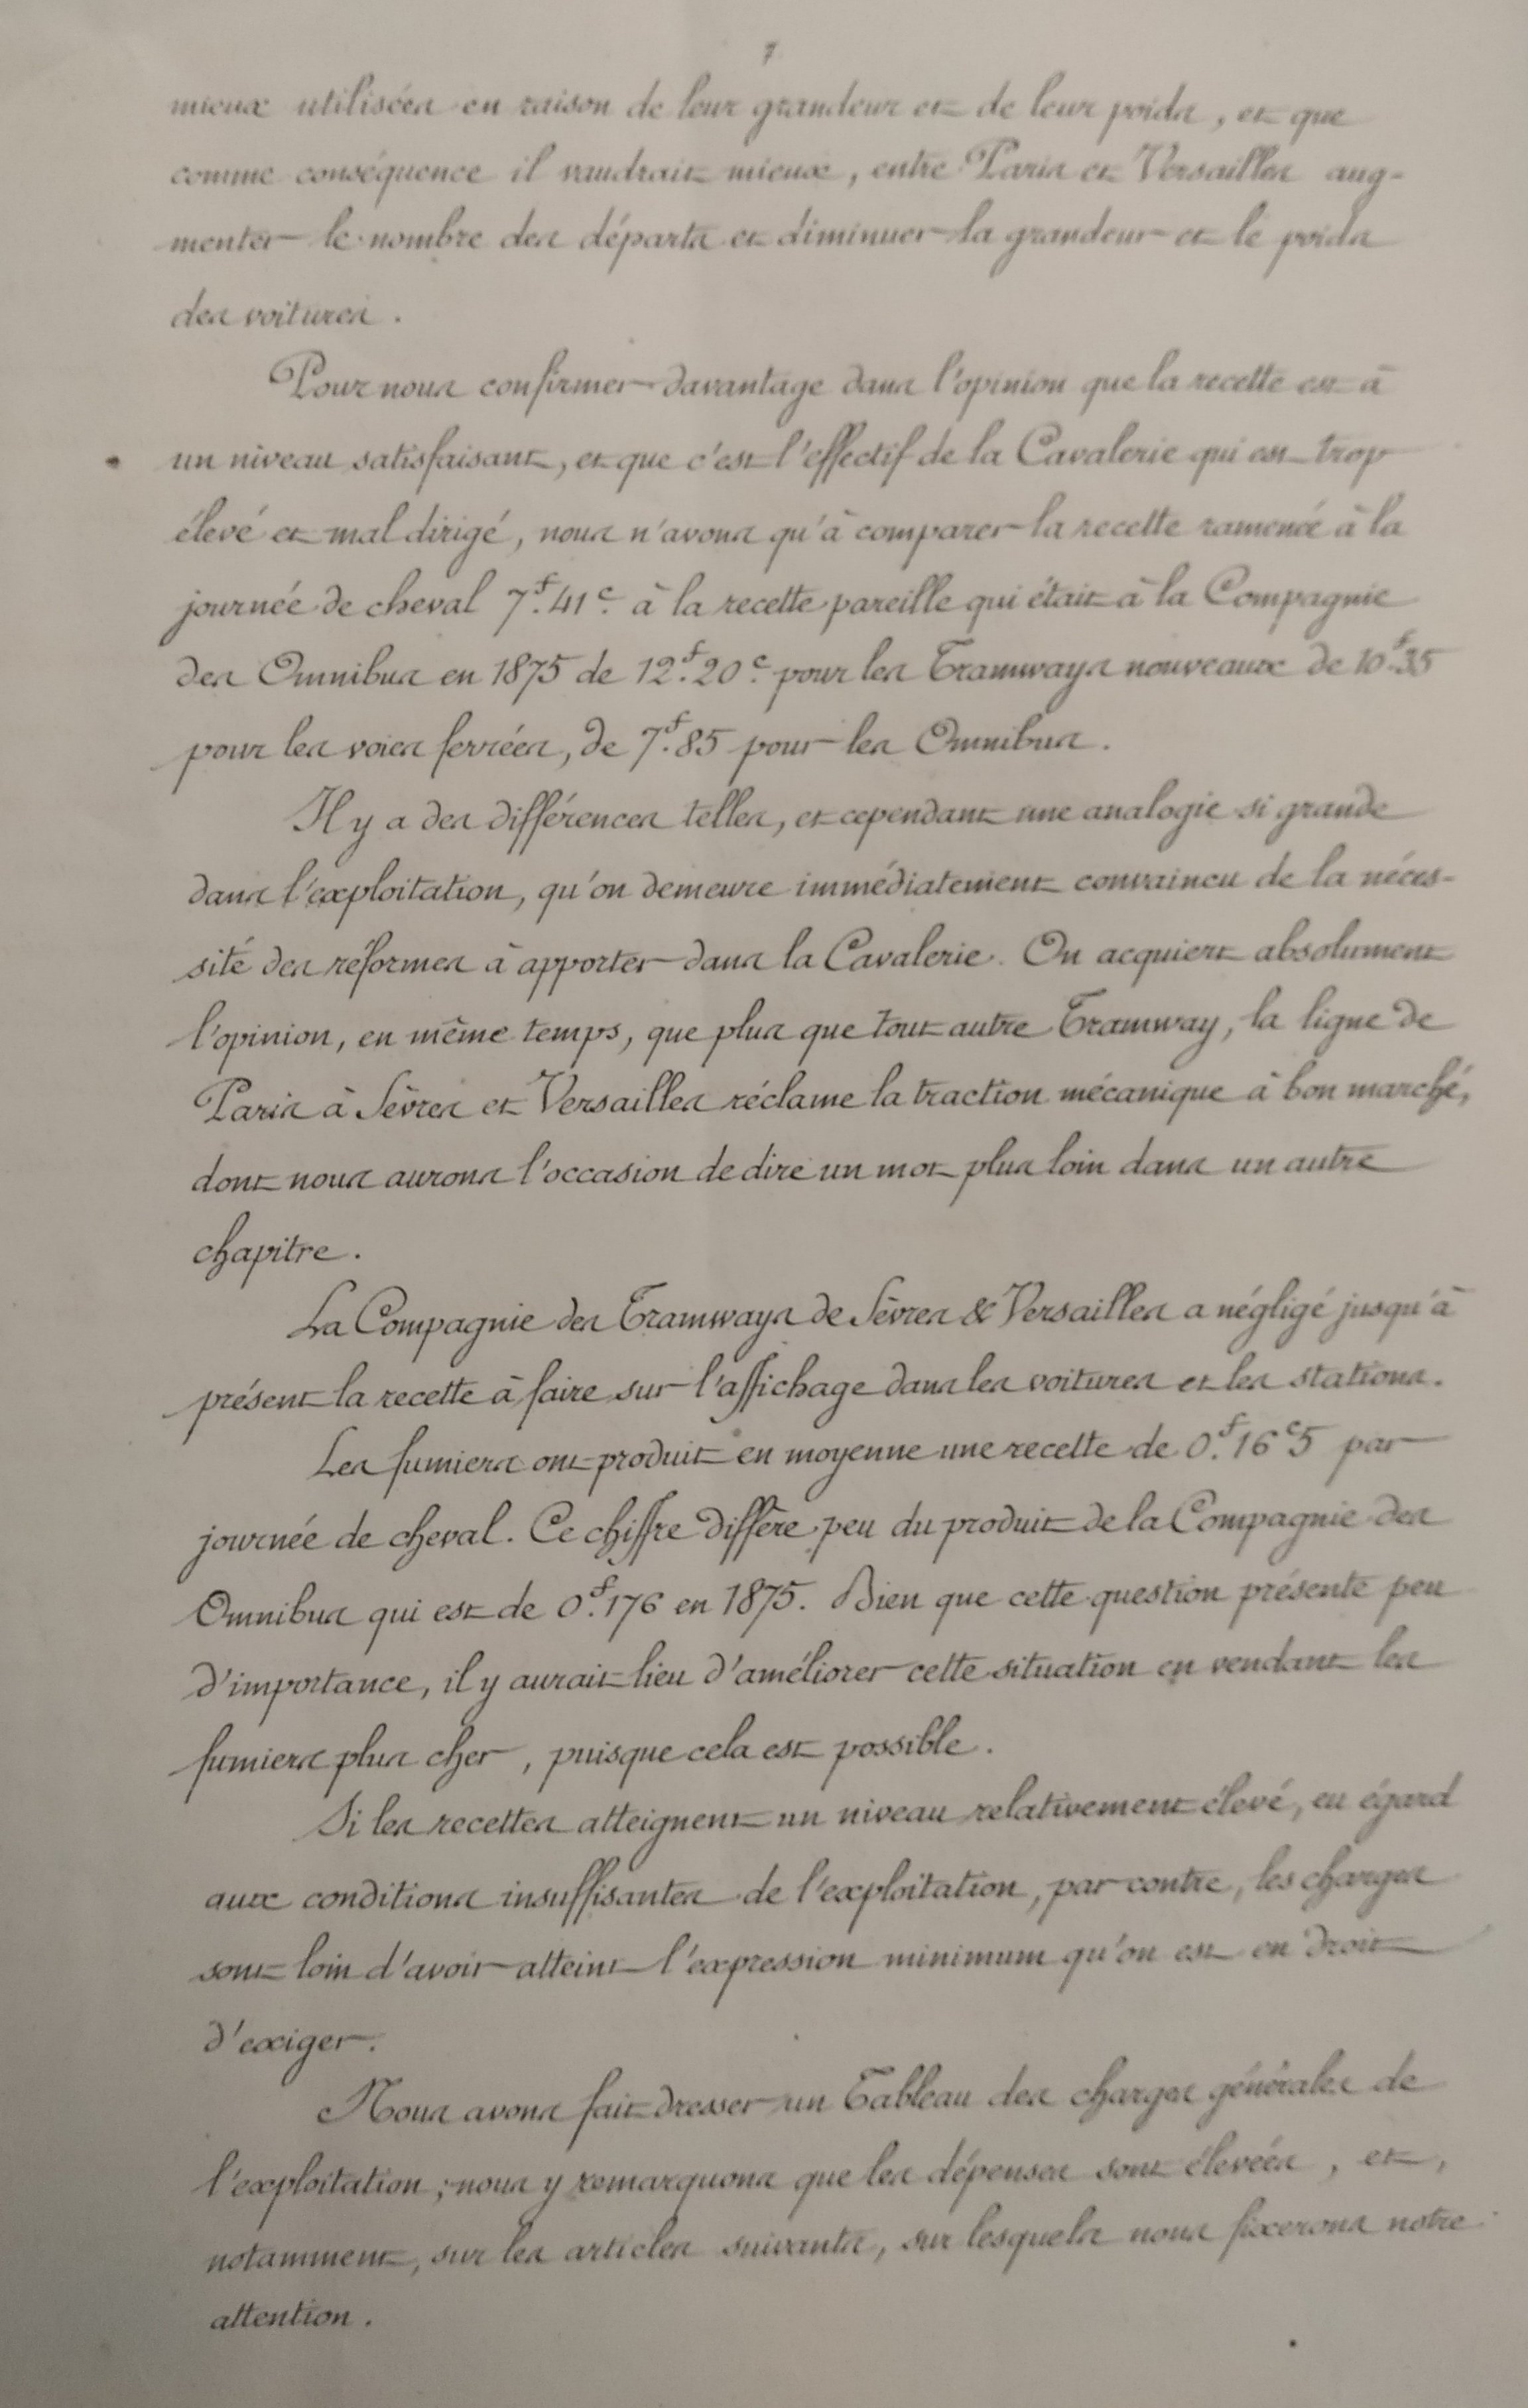 7
mieux utilisées en raison de leur grandeur et de leur poids, et que
comme conséquence il vaudrait mieux, entre Paris et Versailles aug-
menter le nombre des départs et diminuer la grandeur et le poids
des voitures.
Pour nous confirmer davantage dans l'opinion que la recette est à
un niveau satisfaisant, et que c'est l'effectif de la Cavalerie qui est trop
élevé et mal dirigé, nous n'avons qu'à comparer la recette ramenée à la
journée de cheval 7f.41c. à la recette pareille qui était à la Compagnie
des Omnibus en 1875 de 12f.20c. pour les Tramways nouveaux de 10f.35
pour les voies ferrées, de 7f.85 pour les Omnibus.
Il y a des différences telles, et cependant une analogie si grande
dans l'exploitation, qu'on demeure immédiatement convaincu de la néces-
sité des réformes à apporter dans la Cavalerie. On acquiert absolument
l'opinion, en même temps, que plus que tout autre Tramway, la ligne de
Paris à Sèvres et Versailles réclame la traction mécanique à bon marché,
dont nous aurons l'occasion de dire un mot plus loin dans un autre
chapitre.
La Compagnie des Tramways de Sèvres & Versailles a négligé jusqu'à
présent la recette à faire sur l'affichage dans les voitures et les stations.
Les fumiers ont produit en moyenne une recette de 0f.16c5 par
journée de cheval. Ce chiffre diffère peu du produit de la Compagnie des
Omnibus qui est de 0f.176 en 1875. Bien que cette question présente peu
d'importance, il y aurait lieu d'améliorer cette situation en vendant les
fumiers plus cher, puisque cela est possible.
Si les recettes atteignent un niveau relativement élevé, eu égard
aux conditions insuffisantes de l'exploitation, par contre, les charges
sont loin d'avoir atteint l'expression minimum qu'on est en droit
d'exiger.
Nous avons fait dresser un Tableau des charges générales de
l'exploitation; nous y remarquons que les dépenses sont élevées, et,
notamment, sur les articles suivants, sur lesquels nous fixerons notre
attention.